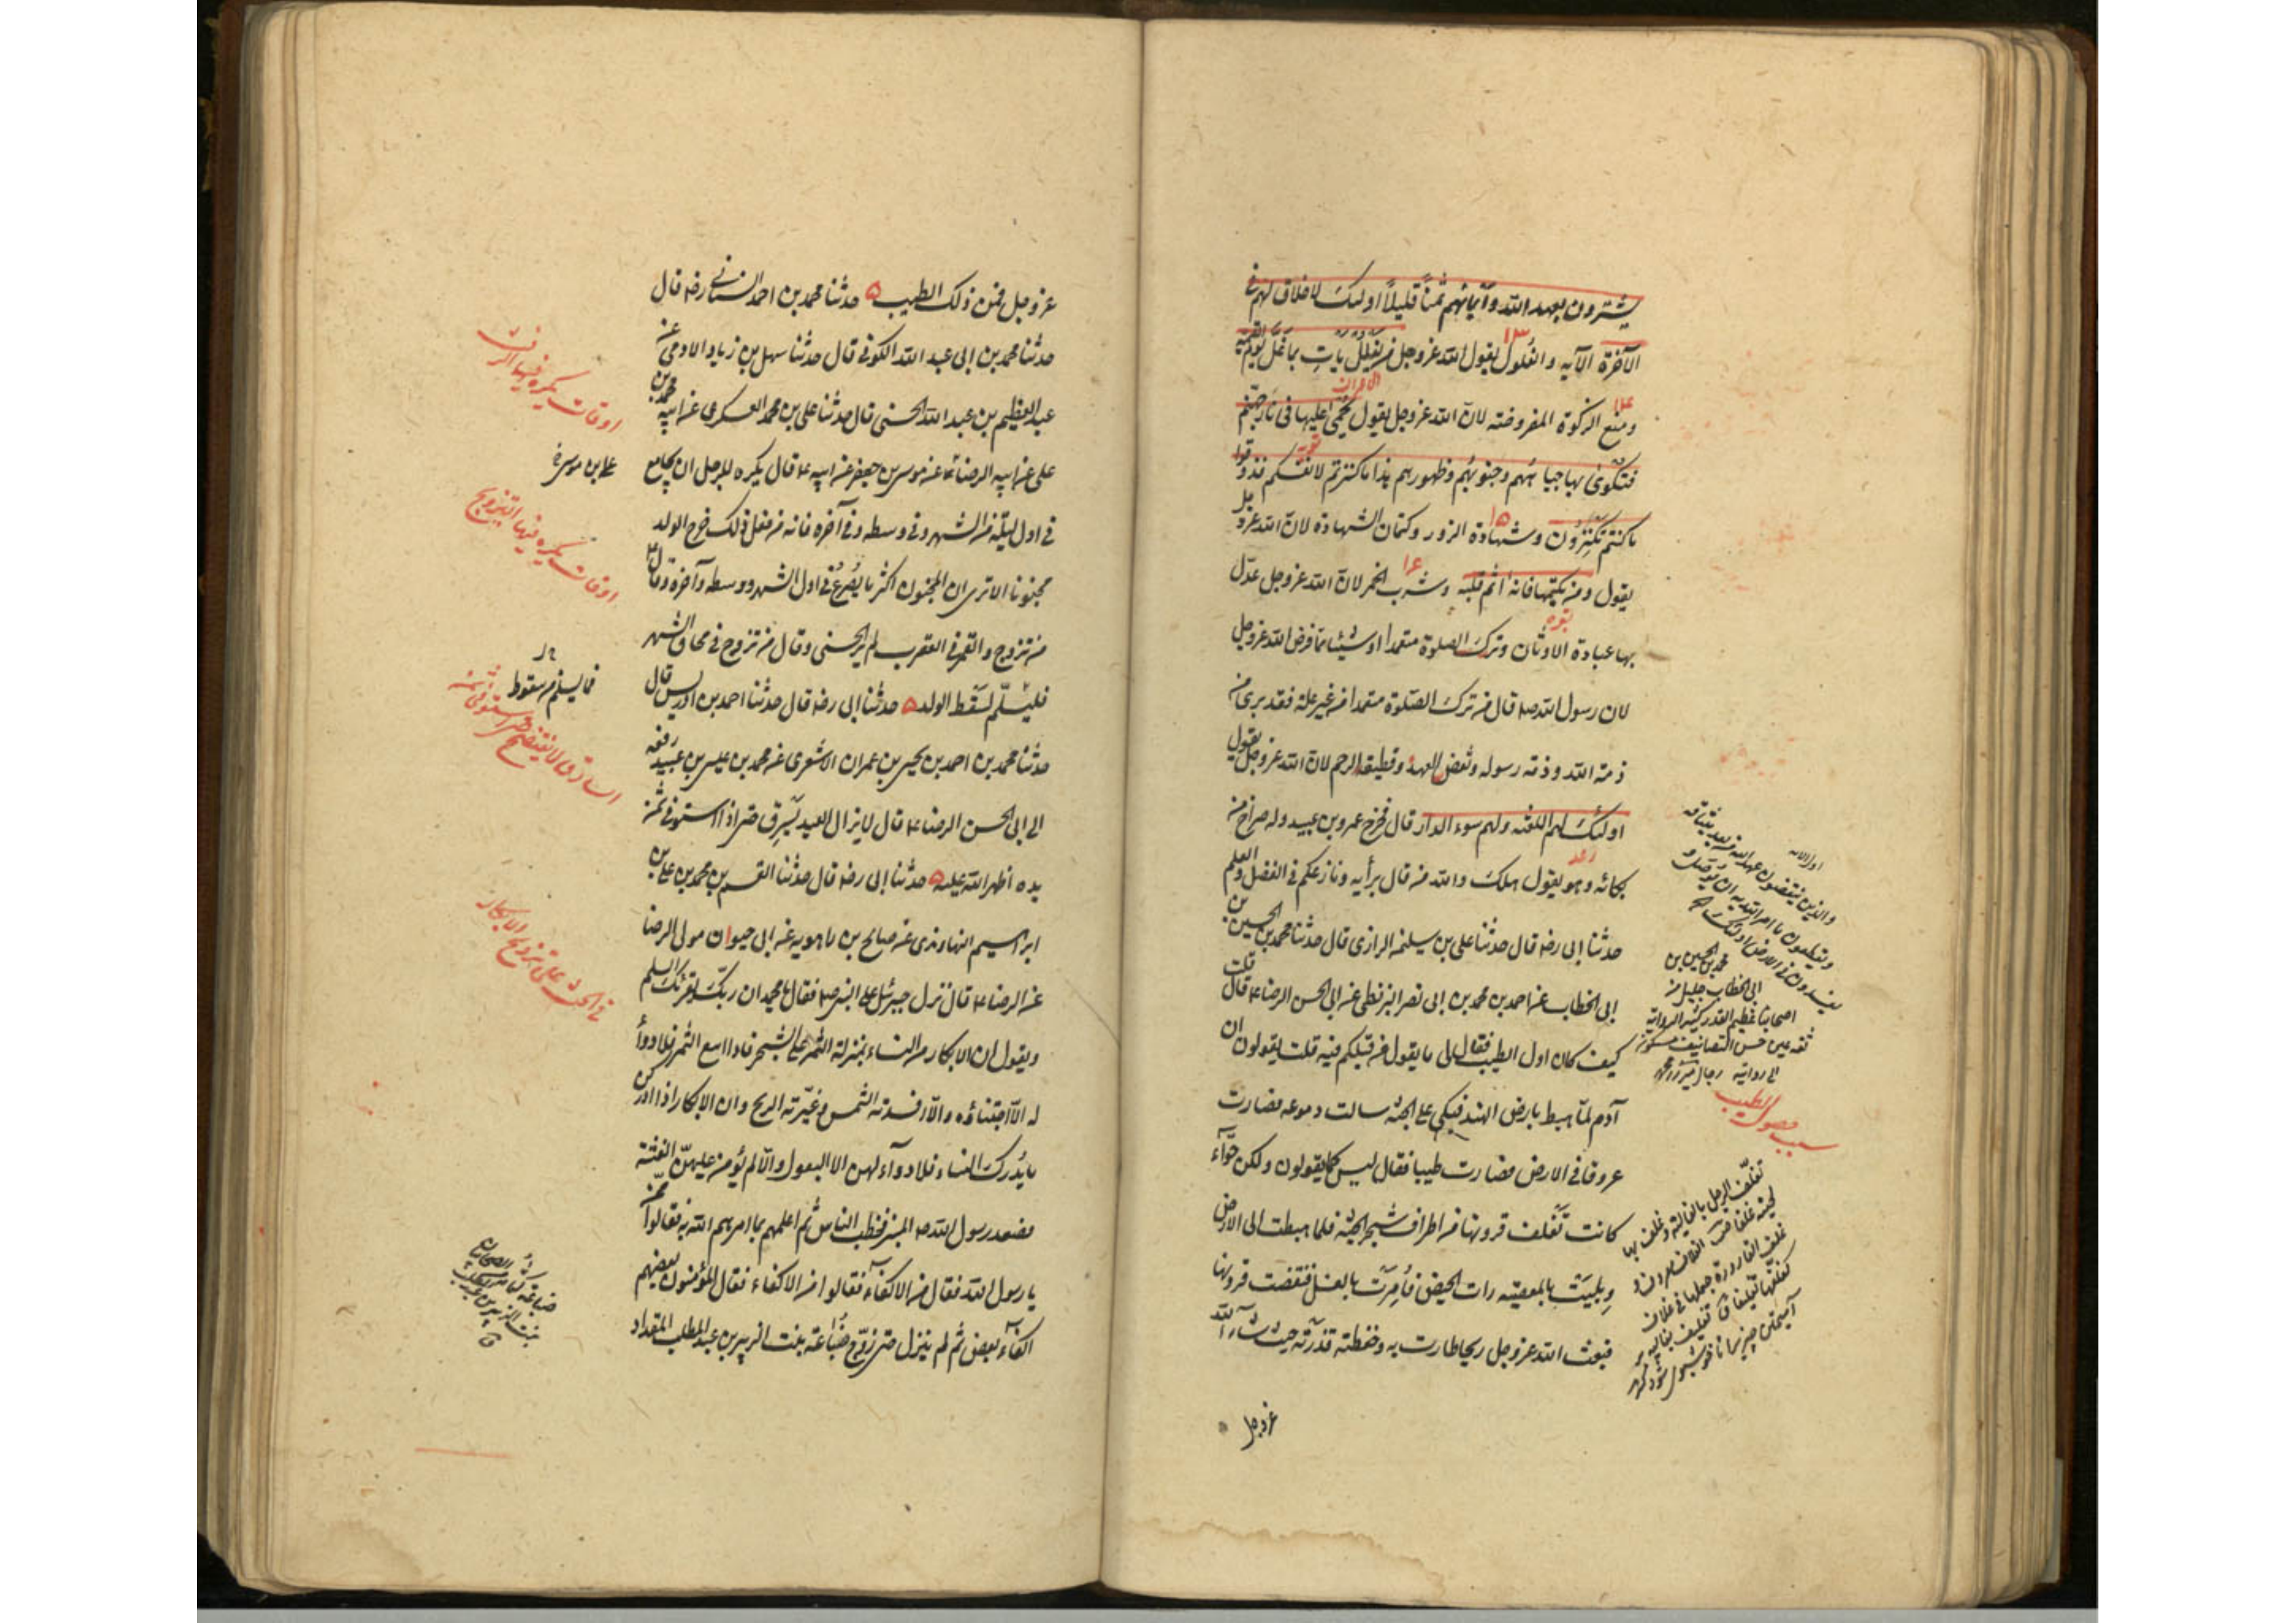 يشترون بعهد الله وأيمانهم ثمناً قليلاً اولئك لا خلاق لهم في
الآخرة الآيه والغلول يقول الله عزوجل ومن يغلل يأت بما غل يوم القيمة
ومنع الزكوة المفروضة لان الله عزوجل يقول يحمى عليها في نار جهنم
فتكوى بها جباههم وجنوبهم وظهورهم هذا ما كنزتم لانفسكم فذوقوا
ما كنتم تكنزون وشهادة الزور وكتمان الشهادة لان الله عزوجل
يقول ومن يكتمها فانه اثم قلبه وشرب الخمر لان الله عزوجل عدل
بها عبادة الاوثان وترك الصلوة متعمدا او شيئا مما فرض الله عزوجل
لان رسول الله ص قال من ترك الصلوة متعمدا من غير علة فقد برئ من
ذمة الله وذمة رسوله ونقض العهد وقطيعة الرحم لان الله عزوجل يقول
اولئك لهم اللعنه ولهم سوء الدار قال فخرج عمرو بن عبيد وله صراخ من
بكائه وهو يقول هلك والله من قال برأيه ونازعكم في الفضل والعلم
حدثنا ابى رضه قال حدثنا على بن سليمن الرازى قال حدثنا محمد بن الحسين بن
ابى الخطاب عن احمد بن محمد بن ابى نصر البزنطى عن ابى الحسن الرضا ع قال قلت
كيف كان اول الطيب فقال لى ما يقول من قبلكم فيه قلت يقولون ان
آدم لما هبط بارض الهند فبكى على الجنة سالت دموعه فصارت
عروقا في الارض فصارت طيبا فقال ليس كما يقولون ولكن حوآء
كانت تغلف قرونها من اطراف شجر الجنة فلما هبطت الى الارض
وبليت بالمعصيه رات الحيض فأمرت بالغسل فنقضت قرونها
فبعث الله عزوجل ريحا طارت به وخفضته فذرته حيث شاء الله
عزوجل
والذين ينقضون عهد الله من بعد ميثاقه
ويقطعون ما امر الله به ان يوصل و
يفسدون في الارض اولئك
محمد بن الحسين بن
ابى الخطاب جليل من
اصحابنا عظيم القدر كثير الرواية
ثقه عين حسن التصانيف مسكون
الى روايته
سبب حصول الطيب
عزوجل فمن ذلك الطيب ۵ حدثنا محمد بن احمد السنانى رضه قال
حدثنا محمد بن ابى عبد الله الكوفى قال حدثنا سهل بن زياد الادمى عن
عبد العظيم بن عبد الله الحسنى قال حدثنا على بن محمد العسكرى عن ابيه محمد بن
على عن ابيه الرضا ع عن موسى بن جعفر عن ابيه ع قال يكره للرجل ان يجامع
في اول ليلة من الشهر وفى وسطه وفى آخره فانه من فعل ذلك خرج الولد
مجنونا الا ترى ان المجنون اكثر ما يصرع في اول الشهر ووسطه وآخره وقال ع
من تزوج والقمر في العقرب لم ير الحسنى وقال من تزوج في محاق الشهر
فليسلم لسقط الولد ۵ حدثنا ابى رضه قال حدثنا احمد بن ادريس قال
حدثنا محمد بن احمد بن يحيى بن عمران الاشعرى عن محمد بن عيسى بن عبيد رفعه
الى ابى الحسن الرضا ع قال لا يزال العبد يسرق حتى اذا استوفى ثمن
يده اظهر الله عليه ۵ حدثنا ابى رضه قال حدثنا القسم بن محمد بن على بن
ابراهيم النهاوندى عن صالح بن راهويه عن ابى حيوان مولى الرضا
عن الرضا ع قال نزل جبرئيل على النبى ص فقال يا محمد ان ربك يقرئك السلم
ويقول ان الابكار من النساء بمنزلة الثمر على الشجر فاذا اينع الثمر فلا دواء
له الا اجتناؤه والا افسدته الشمس وغيرته الريح وان الابكار اذا ادركن
ما يدرك النساء فلا دوآء لهن الا البعول والا لم يؤمن عليهن الفتنة
فصعد رسول الله ص المنبر فخطب الناس ثم اعلمهم بما امرهم الله به فقالوا ممن
يا رسول الله فقال من الاكفآء فقالوا ومن الاكفاء فقال المؤمنون بعضهم
اكفآء بعض ثم لم ينزل حتى زوج ضباعة بنت الزبير بن عبد المطلب المقداد
اوقات يكره فيها الرفث
على بن موسى
اوقات يكره فيها التزويج
فى الحث على تزويج الابكار